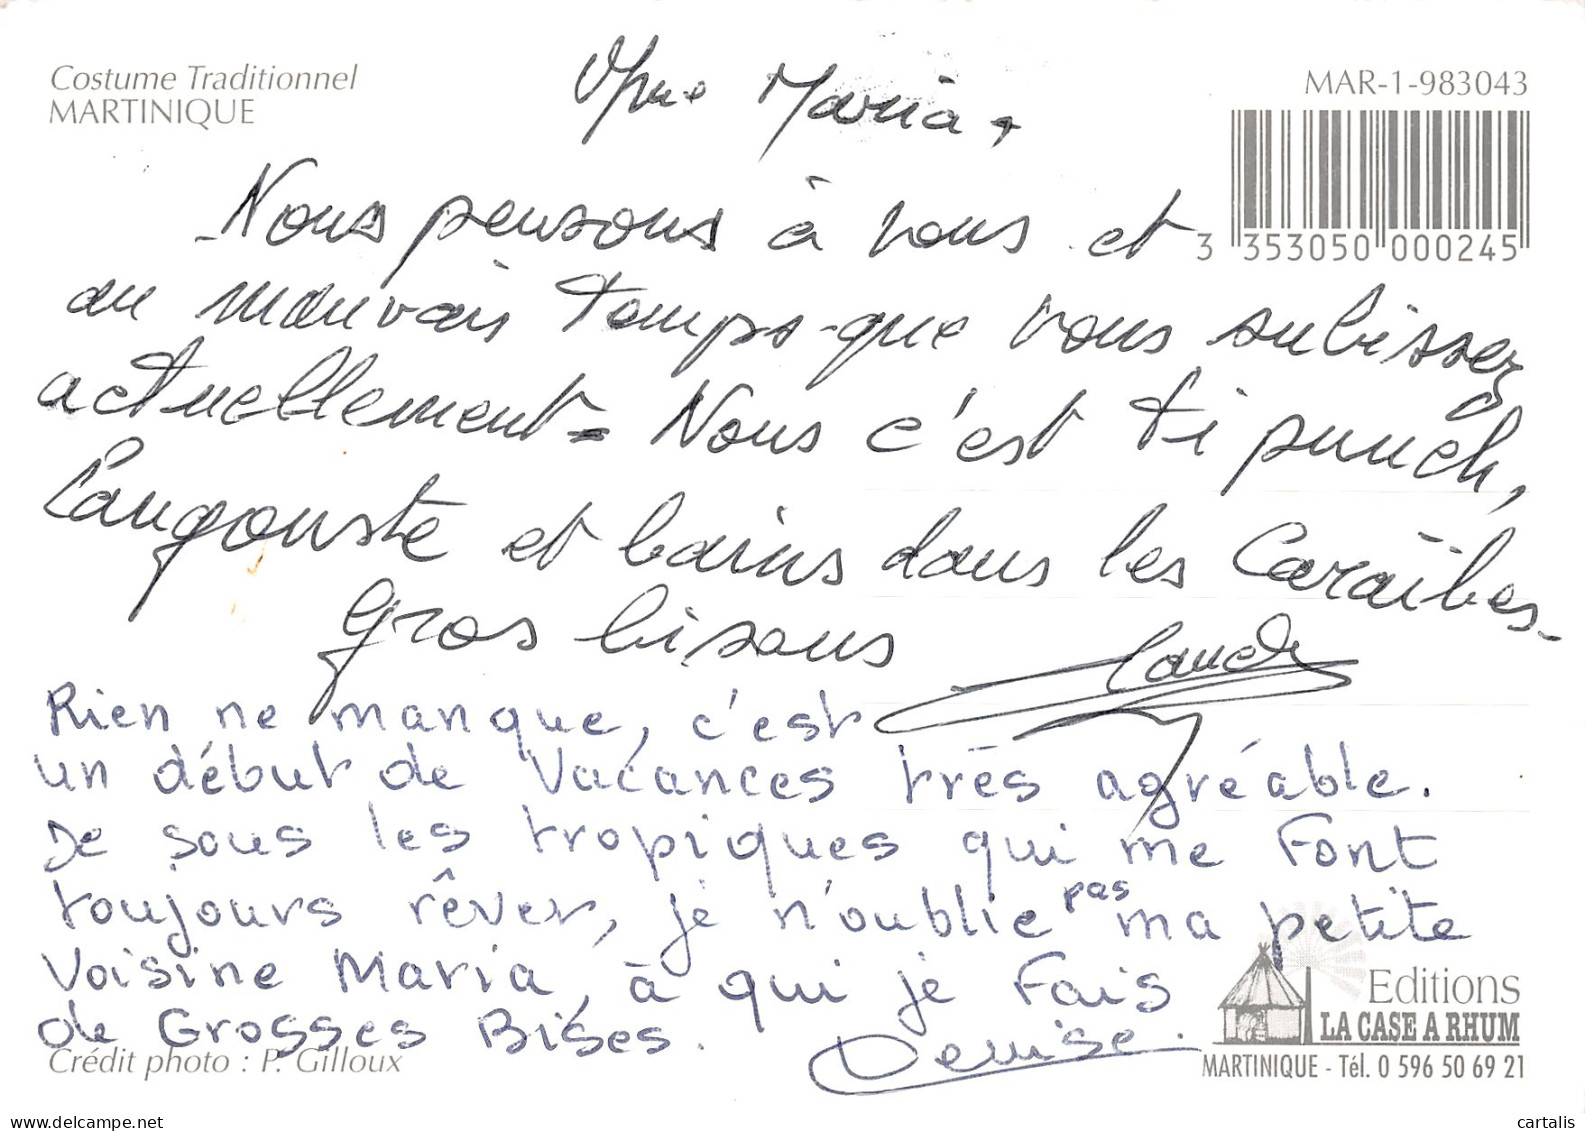 Costume Traditionnel
MARTINIQUE
MAR-1-983043
Maria,
3 353050 000245
Nous pensons à vous et
au mauvais temps que vous subissez
actuellement - Nous c'est ti punch,
Langouste et bains dans les Caraïbes -
Gros bisous
Claude
Rien ne manque, c'est
un début de Vacances très agréable.
De sous les tropiques qui me Font
toujours rêver, je n'oublie pas ma petite
Voisine Maria, à qui je Fais
de Grosses Bises.
Denise.
Crédit photo : P. Gilloux
Editions
LA CASE A RHUM
MARTINIQUE - Tél. 0 596 50 69 21
delcampe.net
cartalis